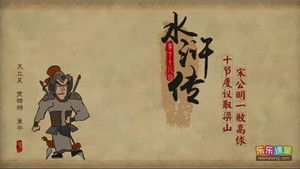 水浒传
十节度议取梁山
宋公明一败高俅
天立星 双枪将 董平
乐乐课堂
leleketang.com